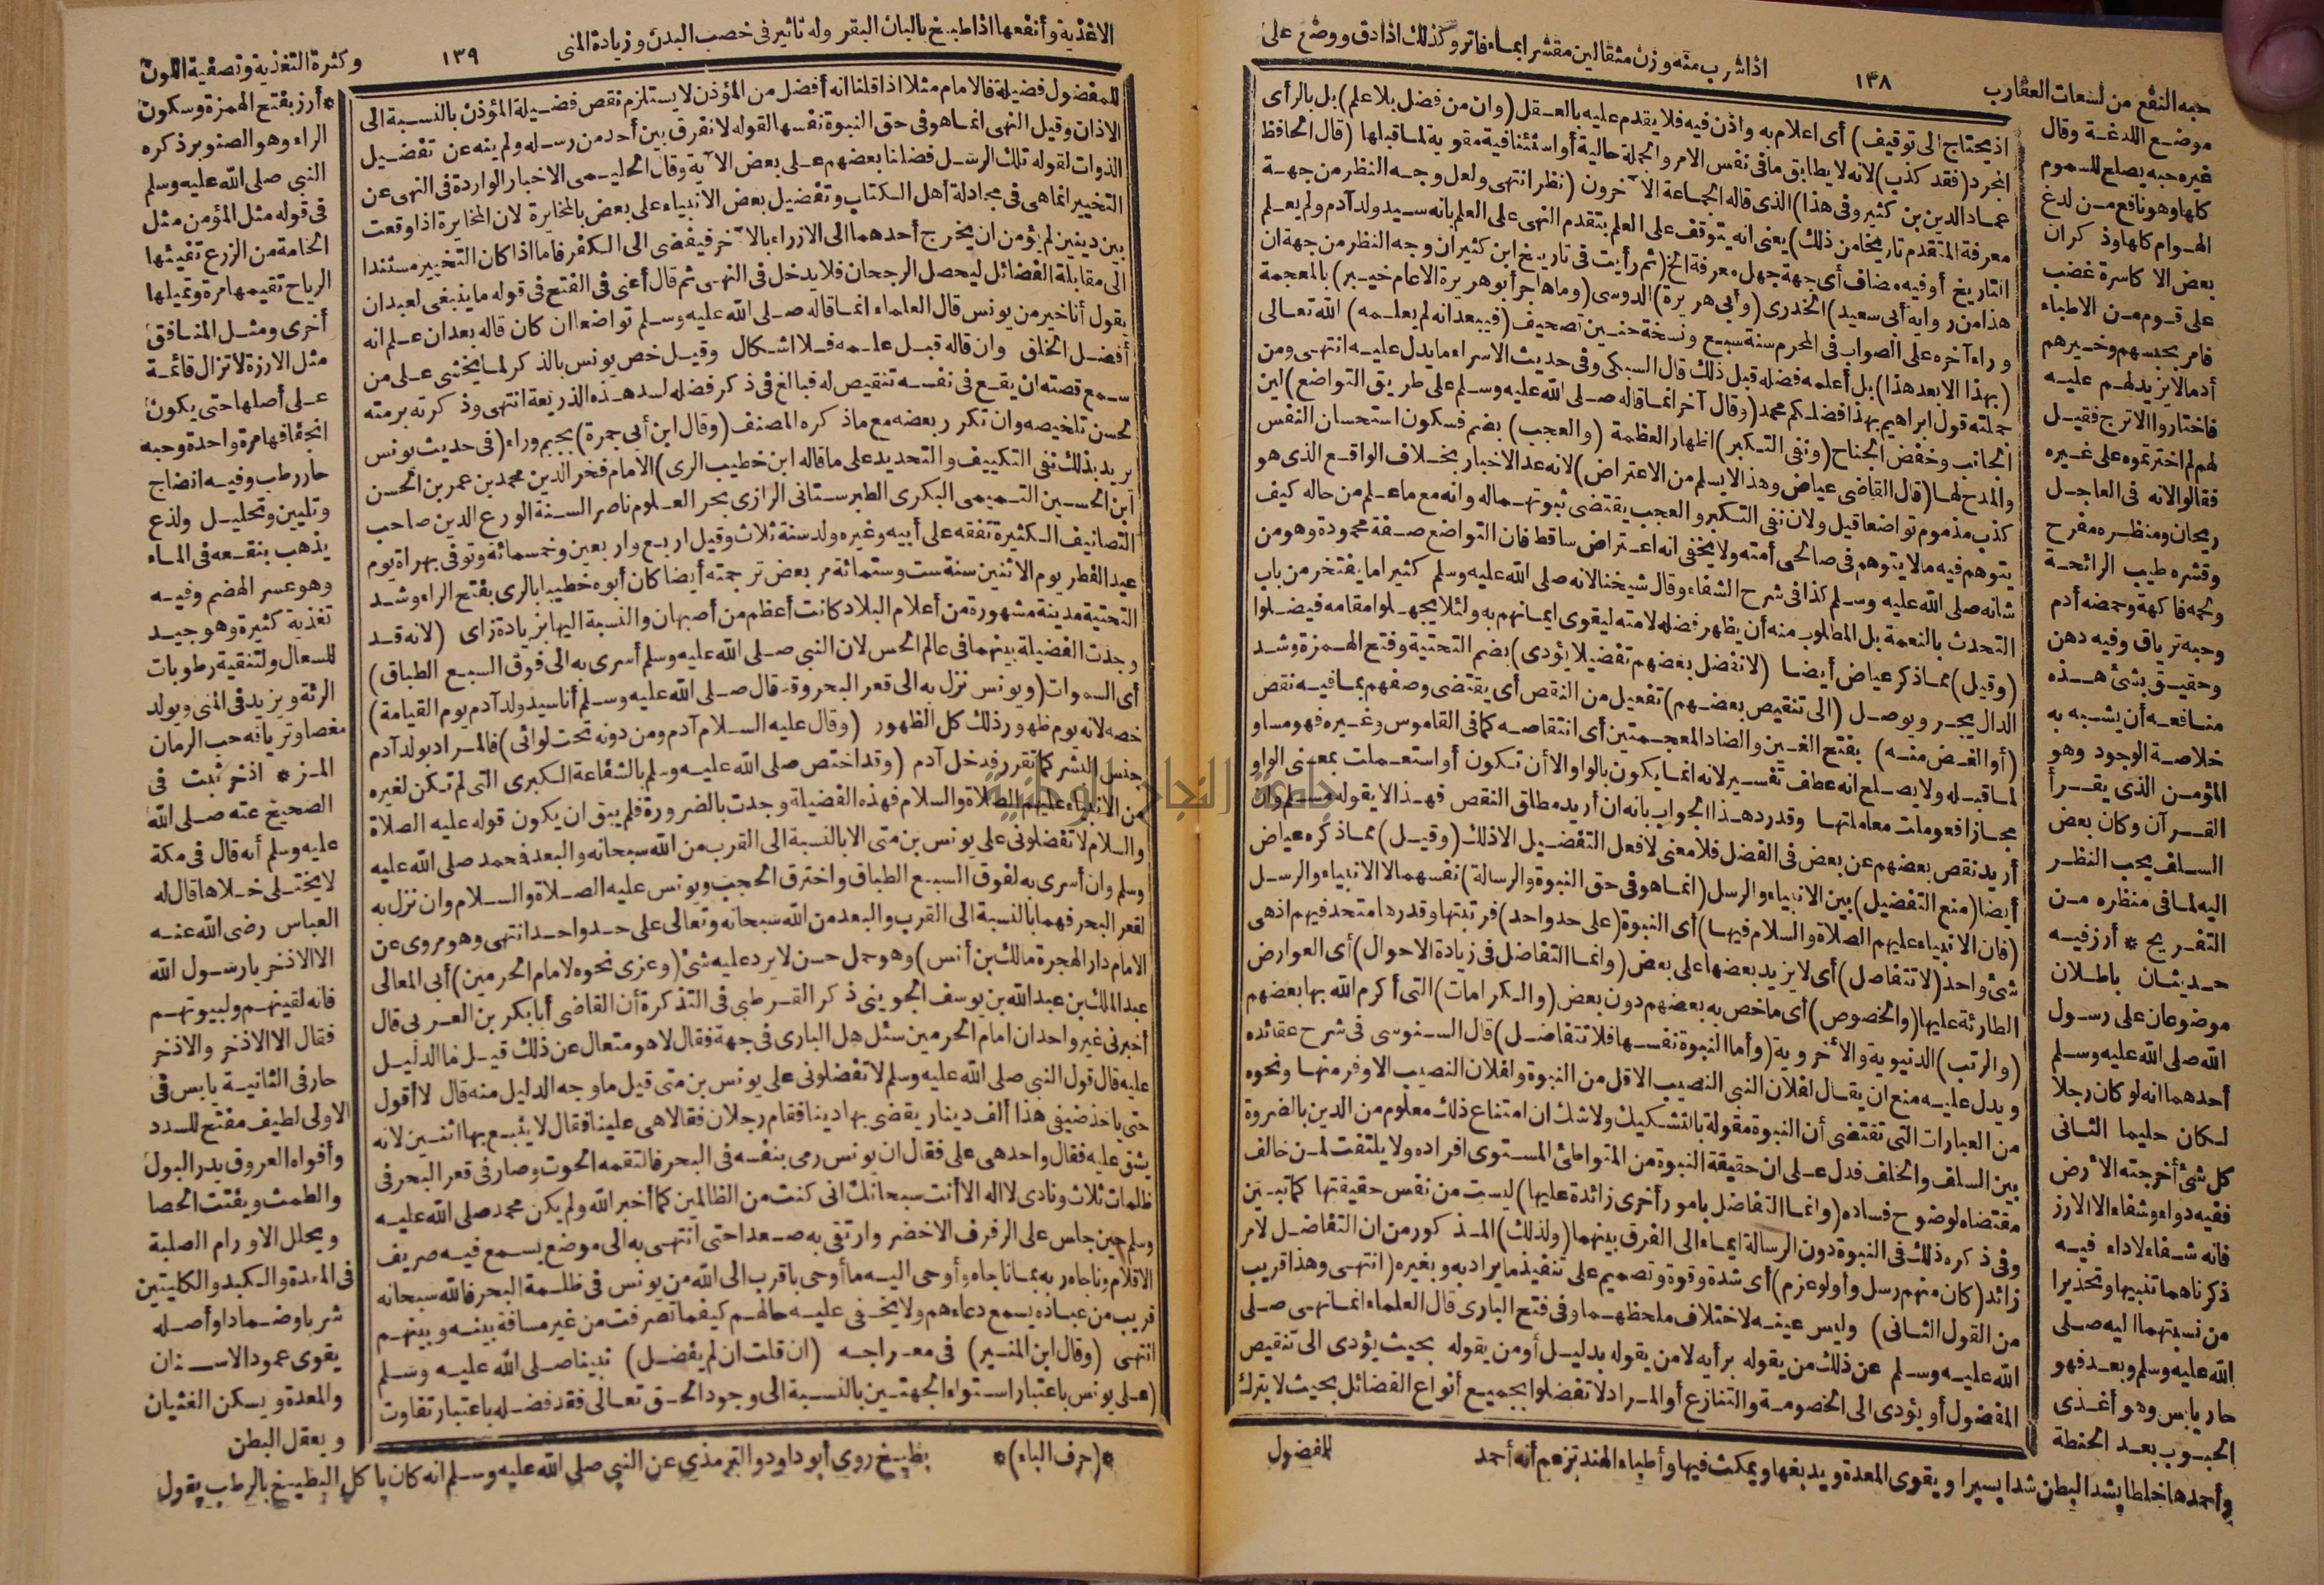 اذا شرب منه وزن مثقالين مقشرا بماء فاتر وكذلك اذا دق ووضع على
١٣٨
حبه النفع من لسعات العقارب
موضع اللدغة وقال
غيره حبه يصلح للسموم
كلها وهو نافع من لدغ
الهوام كلها وذكر ان
بعض الاكاسرة غضب
على قوم من الاطباء
فامر بحبسهم وخيرهم
أدما لا يزيد لهم عليه
فاختاروا الاترج فقيل
لهم لم اخترتموه على غيره
فقالوا لانه فى العاجل
ريحان ومنظره مفرح
وقشره طيب الرائحة
ولحمه فاكهة وحمضه أدم
وحبه ترياق وفيه دهن
وحقيق بشئ هذه
منافعه أن يشبه به
خلاصة الوجود وهو
المؤمن الذى يقرأ
القرآن وكان بعض
السلف يحب النظر
اليه لما فى منظره من
التفريح * أرز فيه
حديثان باطلان
موضوعان على رسول
الله صلى الله عليه وسلم
أحدهما انه لو كان رجلا
لكان حليما الثانى
كل شئ أخرجته الارض
ففيه داء وشفاء الا الارز
فانه شفاء لا داء فيه
ذكرناهما تنبيها وتحذيرا
من نسبتهما اليه صلى
الله عليه وسلم وبعد فهو
حار يابس وهو أغذى
الحبوب بعد الحنطة
وأحمدها خلطا يشد البطن شدا يسيرا ويقوى المعدة ويدبغها ويمكث فيها وأطباء الهند تزعم أنه أحمد
اذ يحتاج الى توقيف) أى اعلام به واذن فيه فلا يقدم عليه بالعقل (وان من فضل بلا علم) بل بالرأى
المجرد (فقد كذب) لانه لا يطابق ما فى نفس الامر والجملة حالية أو استئنافية مقوية لما قبلها (قال الحافظ
عماد الدين بن كثير وفى هذا) الذى قاله الجماعة الآخرون (نظر انتهى ولعل وجه النظر من جهة
معرفة المتقدم تاريخا من ذلك) يعنى انه يتوقف على العلم بتقدم النهى على العلم بانه سيد ولد آدم ولم يعلم
التاريخ أو فيه مضاف أى جهة جهل معرفة الخ (ثم رأيت فى تاريخ ابن كثير ان وجه النظر من جهة ان
هذا من رواية أبى سعيد) الخدرى (وأبى هريرة) الدوسى (وما هاجر أبو هريرة الا عام خيبر) بالمعجمة
وراء آخره على الصواب فى المحرم سنة سبع ونسخة حنين تصحيف (فيبعد انه لم يعلمه) الله تعالى
(بهذا الا بعد هذا) بل أعلمه فضله قبل ذلك قال السبكى وفى حديث الاسراء ما يدل عليه انتهى ومن
جملته قول ابراهيم بهذا فضلكم محمد (وقال آخر انما قاله صلى الله عليه وسلم على طريق التواضع) لين
الجانب وخفض الجناح (ونفى التكبر) اظهار العظمة (والعجب) بضم فسكون استحسان النفس
والمدح لها (قال القاضى عياض وهذا لا يسلم من الاعتراض) لانه عد الاخبار بخلاف الواقع الذى هو
كذب مذموم تواضعا قيل ولان نفى التكبر والعجب يقتضى ثبوتهما له وانه مع ما علم من حاله كيف
يتوهم فيه ما لا يتوهم فى صالحى أمته ولا يخفى انه اعتراض ساقط فان التواضع صفة محمودة وهو من
شانه صلى الله عليه وسلم كذا فى شرح الشفاء وقال شيخنا لانه صلى الله عليه وسلم كثيرا ما يفتخر من باب
التحدث بالنعمة بل المطلوب منه أن يظهر فضله لامته ليقوى ايمانهم به ولئلا يجهلوا مقامه فيضلوا
(وقيل) مما ذكر عياض أيضا (لا تفضل بعضهم تفضيلا يؤدى) بضم التحتية وفتح الهمزة وشد
الدال يجر ويوصل (الى تنقيص بعضهم) تفعيل من النقص أى يقتضى وصفهم بما فيه نقص
(أو الغض منه) بفتح الغين والضاد المعجمتين أى انتقاصه كما فى القاموس وغيره فهو مساو
لما قبله ولا يصلح انه عطف تفسير لانه انما يكون بالواو الا أن تكون أو استعملت بمعنى الواو
مجازا فعوملت معاملتها وقدر دهذا الجواب بانه ان أريد مطلق النقص فهذا لا يقوله مسلم وان
أريد نقص بعضهم عن بعض فى الفضل فلا معنى لافعل التفضيل الا ذلك (وقيل) مما ذكره عياض
أيضا (منع التفضيل) بين الانبياء والرسل (انما هو فى حق النبوة والرسالة) نفسهما لا الانبياء والرسل
(فان الانبياء عليهم الصلاة والسلام فيها) أى النبوة (على حد واحد) فرتبتها وقدرها متحد فيهم اذ هى
شئ واحد (لا تتفاصل) أى لا يزيد بعضها على بعض (وانما التفاضل فى زيادة الاحوال) أى العوارض
الطارئة عليها (والخصوص) أى ما خص به بعضهم دون بعض (والكرامات) التى أكرم الله بها بعضهم
(والرتب) الدنيوية والأخروية (وأما النبوة نفسها فلا تتفاضل) قال السنوسى فى شرح عقائده
ويدل عليه منع ان يقال لفلان النبى النصيب الاقل من النبوة ولفلان النصيب الاوفر منها ونحوه
من العبارات التى تقتضى أن النبوة مقولة بالتشكيك ولا شك ان امتناع ذلك معلوم من الدين بالضروة
بين السلف والخلف فدل على ان حقيقة النبوة من المتواطئ المستوى افراده ولا يلتفت لمن خالف
مقتضاه لوضوح فساده (وانما التفاضل بامور أخرى زائدة عليها) ليست من نفس حقيقتها كما تبين
وفى ذكره ذلك فى النبوة دون الرسالة ايماء الى الفرق بينهما (ولذلك) المذكور من ان التفاضل لامر
زائد (كان منهم رسل وأولو عزم) أى شدة وقوة وتصميم على تنفيذ ما يراد به وبغيره (انتهى وهذا قريب
من القول الثانى) وليس عينه لاختلاف ملحظهما وفى فتح البارى قال العلماء انما نهى صلى
الله عليه وسلم عن ذلك من يقوله برأيه لا من يقوله بدليل أو من يقوله بحيث يؤدى الى تنقيص
المفضول أو يؤدى الى الخصومة والتنازع أو المراد لا تفضلوا بجميع أنواع الفضائل بحيث لا يترك
للمفضول
الاغذية وأنفعها اذا طبخ بالبان البقر وله تاثير فى خصب البدن وزيادة المنى
١٣٩
وكثرة التغذية وتصفية اللون
للمفضول فضيلة فالامام مثلا اذا قلنا انه أفضل من المؤذن لا يستلزم نقص فضيلة المؤذن بالنسبة الى
الاذان وقيل النهى انما هو فى حق النبوة نفسها لقوله لا نفرق بين أحد من رسله ولم ينه عن تفضيل
الذوات لقوله تلك الرسل فضلنا بعضهم على بعض الآية وقال الحليمى الاخبار الواردة فى النهى عن
التخيير انما هى فى مجادلة أهل الكتاب وتفضيل بعض الانبياء على بعض بالمخايرة لان المخايرة اذا وقعت
بين دينين لم يؤمن ان يخرج أحدهما الى الازراء بالآخر فيفضى الى الكفر فاما اذا كان التخيير مستندا
الى مقابلة الفضائل ليحصل الرجحان فلا يدخل فى النهى ثم قال أعنى فى الفتح فى قوله ما ينبغى لعبد ان
يقول أنا خير من يونس قال العلماء انما قاله صلى الله عليه وسلم تواضعا ان كان قاله بعد ان علم انه
أفضل الخلق وان قاله قبل علمه فلا اشكال وقيل خص يونس بالذكر لما يخشى على من
سمع قصته ان يقع فى نفسه تنقيص له فبالغ فى ذكر فضله لسد هذه الذريعة انتهى وذكرته برمته
لحسن تلخيصه وان تكرر بعضه مع ما ذكره المصنف (وقال ابن أبى جمرة) بجيم وراء (فى حديث يونس
يريد بذلك نفى التكييف والتحديد على ما قاله ابن خطيب الرى) الامام فخر الدين محمد بن عمر بن الحسن
ابن الحسين التميمى البكرى الطبرستانى الرازى بحر العلوم ناصر السنة الورع الدين صاحب
التصانيف الكثيرة تفقه على أبيه وغيره ولد سنة ثلاث وقيل اربع واربعين وخمسمائة وتوفى بهراة يوم
عيد الفطر يوم الاثنين سنة ست وستمائة مر بعض ترجمته أيضا كان أبوه خطيبا بالرى بفتح الراء وشد
التحتية مدينة مشهورة من أعلام البلاد كانت أعظم من أصبهان والنسبة اليها بزيادة زاى (لانه قد
وجدت الفضيلة بينهما فى عالم الحس لان النبى صلى الله عليه وسلم أسرى به الى فوق السبع الطباق)
أى السموات (ويونس نزل به الى قعر البحر وقد قال صلى الله عليه وسلم أنا سيد ولد آدم يوم القيامة)
خصه لانه يوم ظهور ذلك كل الظهور (وقال عليه السلام آدم ومن دونه تحت لوائى) فالمراد بولد آدم
جنس البشر كما تقرر فدخل آدم (وقد اختص صلى الله عليه وسلم بالشفاعة الكبرى التى لم تكن لغيره
من الانبياء عليهم الصلاة والسلام فهذه الفضيلة وجدت بالضرورة فلم يبق ان يكون قوله عليه الصلاة
والسلام لا تفضلونى على يونس بن متى الا بالنسبة الى القرب من الله سبحانه والبعد فمحمد صلى الله عليه
وسلم وان أسرى به لفوق السبع الطباق واخترق الحجب ويونس عليه الصلاة والسلام وان نزل به
لقعر البحر فهما بالنسبة الى القرب والبعد من الله سبحانه وتعالى على حد واحد انتهى وهو مروى عن
الامام دار الهجرة مالك بن أنس) وهو جمل حسن لا يرد عليه شئ (وعزى نحوه لامام الحرمين) أبى المعالى
عبد الملك بن عبد الله بن يوسف الجوينى ذكر القرطبى فى التذكرة أن القاضى أبا بكر بن العربى قال
أخبرنى غير واحد ان امام الحرمين سئل هل البارى فى جهة فقال لا هو متعال عن ذلك قيل فما الدليل
عليه قال قول النبى صلى الله عليه وسلم لا تفضلونى على يونس بن متى قيل ما وجه الدليل منه قال لا أقول
حتى ياخذ ضيفى هذا ألف دينار يقضى بها دينا فقام رجلان فقالا هى علينا فقال لا يتبع بها اثنين لانه
يشق عليه فقال واحد هى على فقال ان يونس رمى بنفسه فى البحر فالتقمه الحوت وصار فى قعر البحر فى
ظلمات ثلاث ونادى لا اله الا أنت سبحانك انى كنت من الظالمين كما أخبر الله ولم يكن محمد صلى الله عليه
وسلم حين جلس على الرفرف الاخضر وارتقى به صعدا حتى انتهى به الى موضع يسمع فيه صريف
الاقلام وناجاه ربه بما ناجاه وأوحى اليه ما أوحى باقرب الى الله من يونس فى ظلمة البحر فالله سبحانه
قريب من عباده يسمع دعاءهم ولا يخفى عليه حالهم كيفما تصرفت من غير مسافة بينه وبينهم
انتهى (وقال ابن المنير) فى معراجه (ان قلت ان لم يفضل) نبينا صلى الله عليه وسلم
(على يونس باعتبار استواء الجهتين بالنسبة الى وجود الحق تعالى فقد فضله باعتبار تفاوت
* أرز بفتح الهمزة وسكون
الراء وهو الصنوبر ذكره
النبى صلى الله عليه وسلم
فى قوله مثل المؤمن مثل
الخامة من الزرع تفيئها
الرياح تقيمها مرة وتميلها
أخرى ومثل المنافق
مثل الارزة لا تزال قائمة
على أصلها حتى يكون
انجعافها مرة واحدة وحبه
حار رطب وفيه انضاج
وتليين وتحليل ولذع
يذهب بنقعه فى الماء
وهو عسر الهضم وفيه
تغذية كثيرة وهو جيد
للسعال ولتنقية رطوبات
الرئة ويزيد فى المنى ويولد
مغصا وترياقه حب الرمان
المز * اذخر ثبت فى
الصحيح عنه صلى الله
عليه وسلم أنه قال فى مكة
لا يختلى خلاها قال له
العباس رضى الله عنه
الا الاذخر يا رسول الله
فانه لقينهم ولبيوتهم
فقال الا الاذخر والاذخر
حار فى الثانية يابس فى
الاولى لطيف مفتح للسدد
وأفواه العروق يدر البول
والطمث ويفتت الحصا
ويحلل الاورام الصلبة
فى المعدة والكبد والكليتين
شربا وضمادا وأصله
يقوى عمود الاسنان
والمعدة ويسكن الغثيان
ويعقل البطن
*(حرف الباء)* بطيخ روى أبو داود والترمذى عن النبى صلى الله عليه وسلم انه كان ياكل البطيخ بالرطب يقول
جامعة النجاح الوطنية